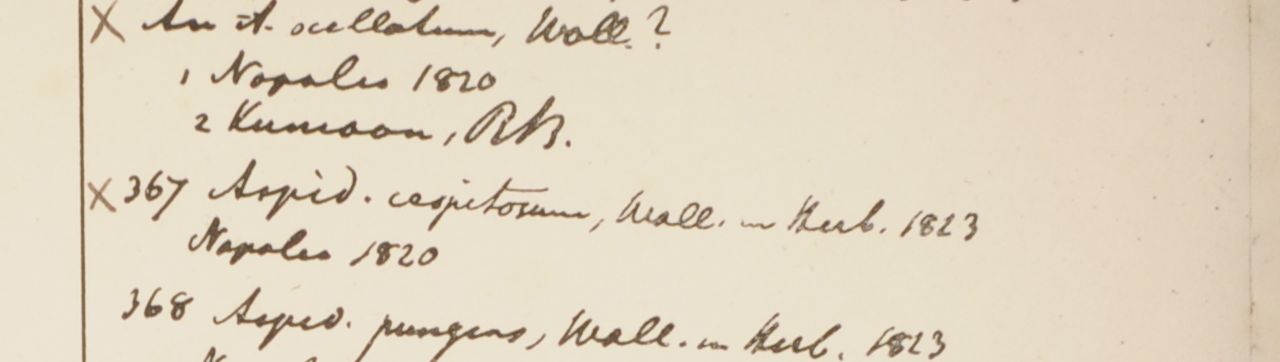 X An A. ocellatum, Wall.?
1 Napalia 1820
2 Kumaon, R.B.
X 367 Aspid. cespitosum, Wall. in Herb. 1823
Napalia 1820
368 Aspid. pungens, Wall. in Herb. 1823